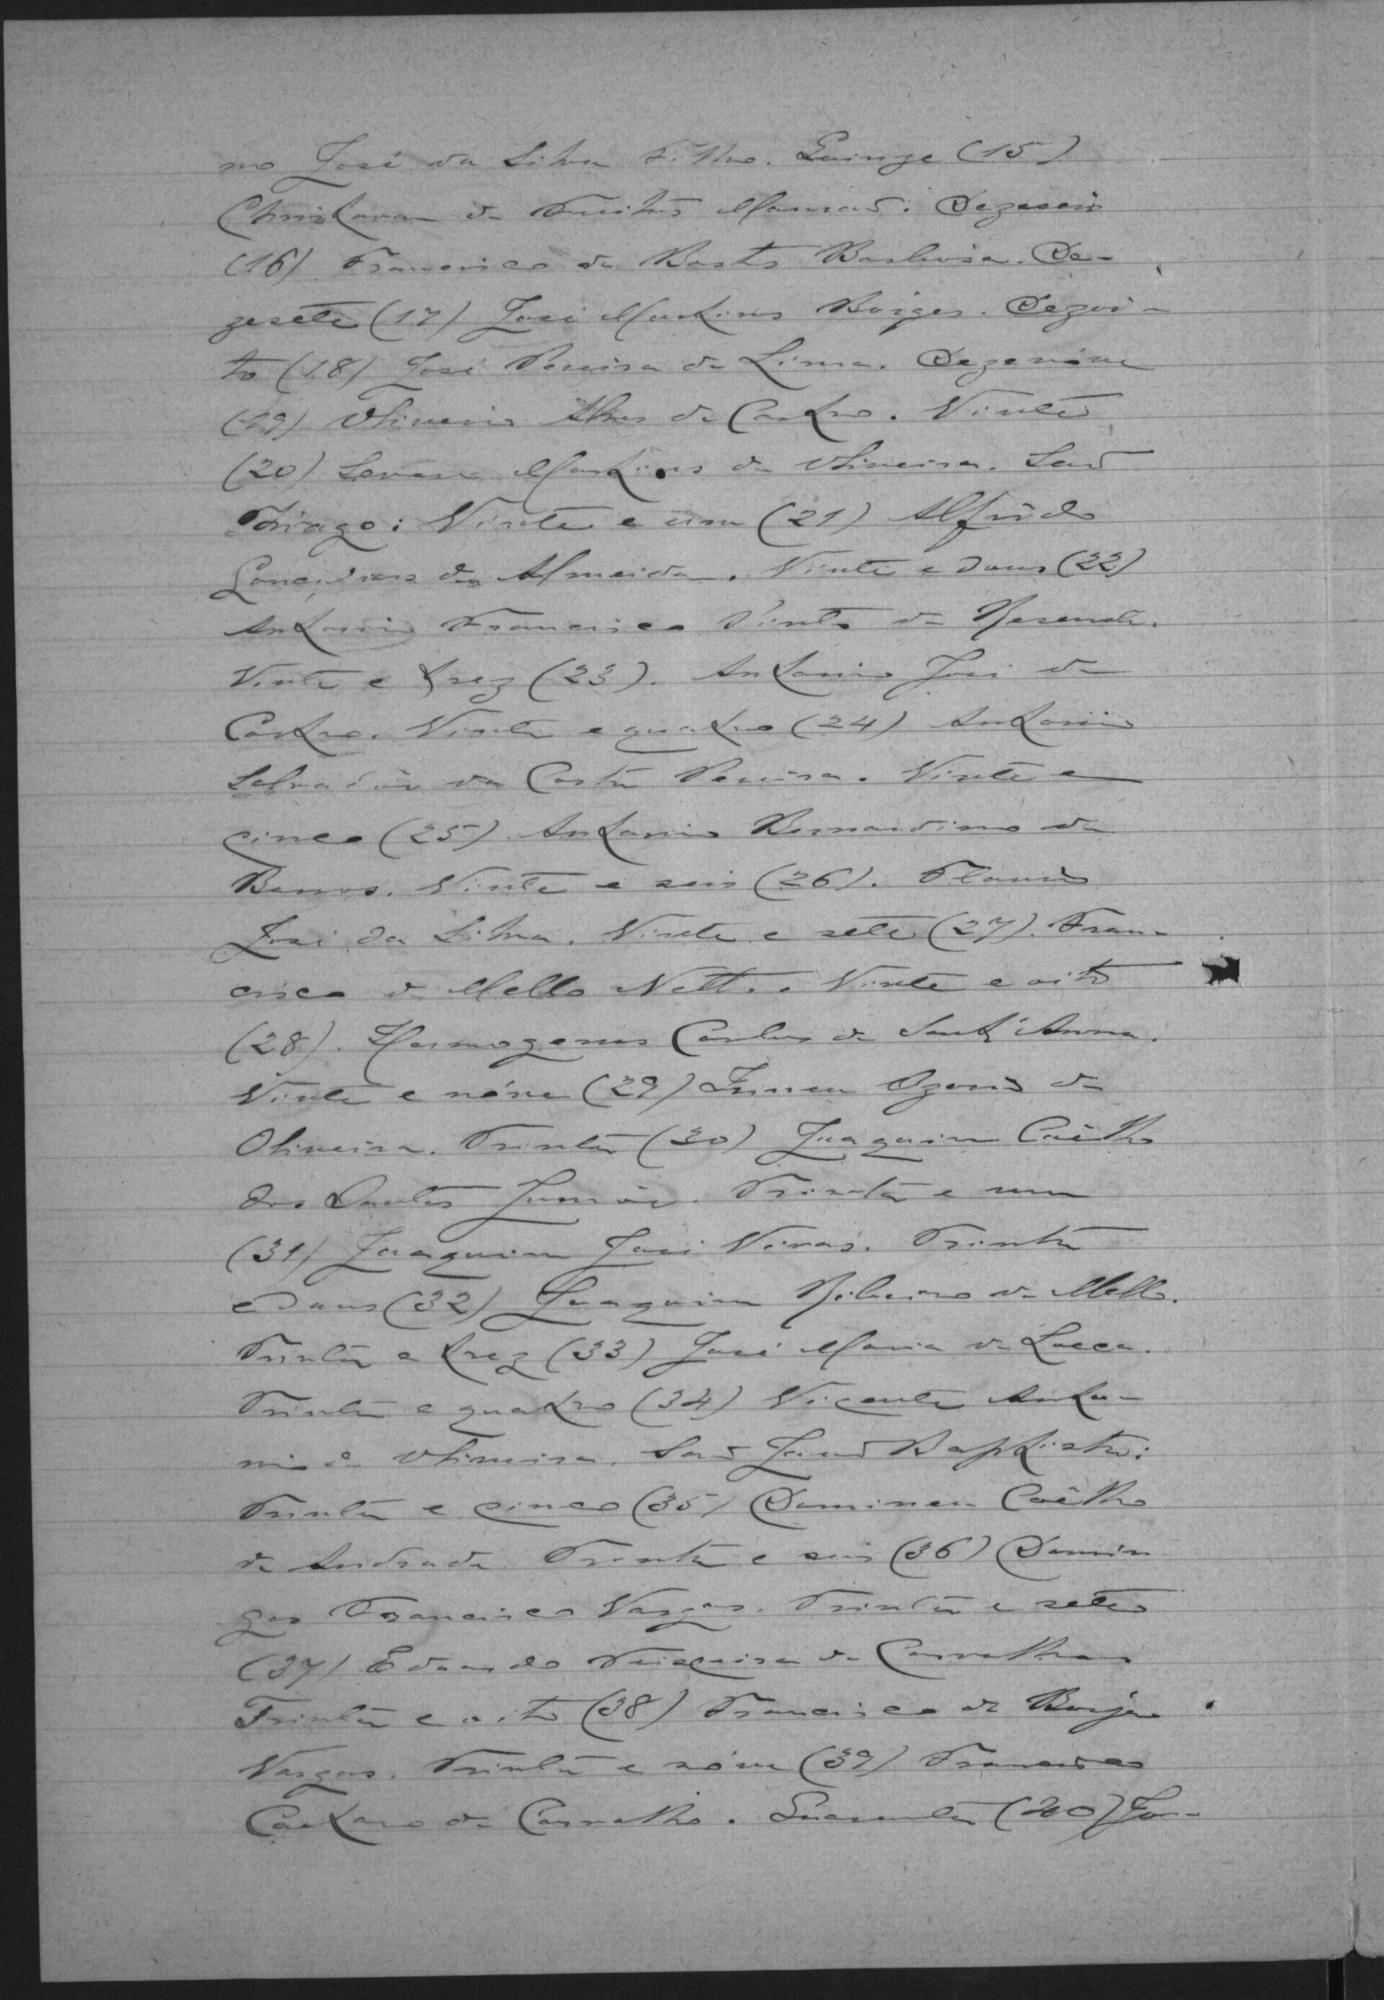 mo José da Silva Filho. Quinze (15)
Christovam de Freitas Mourão. Dezeseis
(16) Francisco de Bastos Barbosa. De-
zesete (17) José Martins Borges. Dezoi-
to (18) José Pereira de Lima. Dezenove
(19) Oliverio Alves de Castro. Vinte
(20) Martins de Oliveira. São
Thiago: Vinte e um (21) Alfrêdo
Gonçalves de Almeida. Vinte e dous (22)
Antonio Francisco Pinto de Resende.
Vinte e trez (23). Antonio José de
Castro. Vinte e quatro (24) Antonio
Salvador da Costa Pereira. Vinte e
cinco (25) Antonio Bernardino de
Barros. Vinte e seis (26). Flavio
José da Silva. Vinte e sete (27). Fran-
cisco de Mello Netto. Vinte e oito
(28). Hermogenes Carlos de Sant'Anna.
Vinte e nóve (29) Irineu Ozorio de
Oliveira. Trinta (30) Joaquim Coêlho
dos Santos Junior. Trinta e um
(31) Joaquim José Vivas. Trinta
e dous (32) Joaquim Ribeiro de Mello.
Trinta e trez (33) José Maria de Lacca.
Trinta e quatro (34) Vicente Anto-
nio de Oliveira. São João Baptista:
Trinta e cinco (35) Domineu Coêlho
de Andrade Trinta e seis (36) Domin
gos Francisco Vargas. Trinta e sete
(37) Eduardo Teixeira de Carvalho
Trinta e oito (38) Francisco de Borja
Vargas. Trinta e nóve (39) Francisco
Caetano de Carvalho. Quarenta (40) Jo-